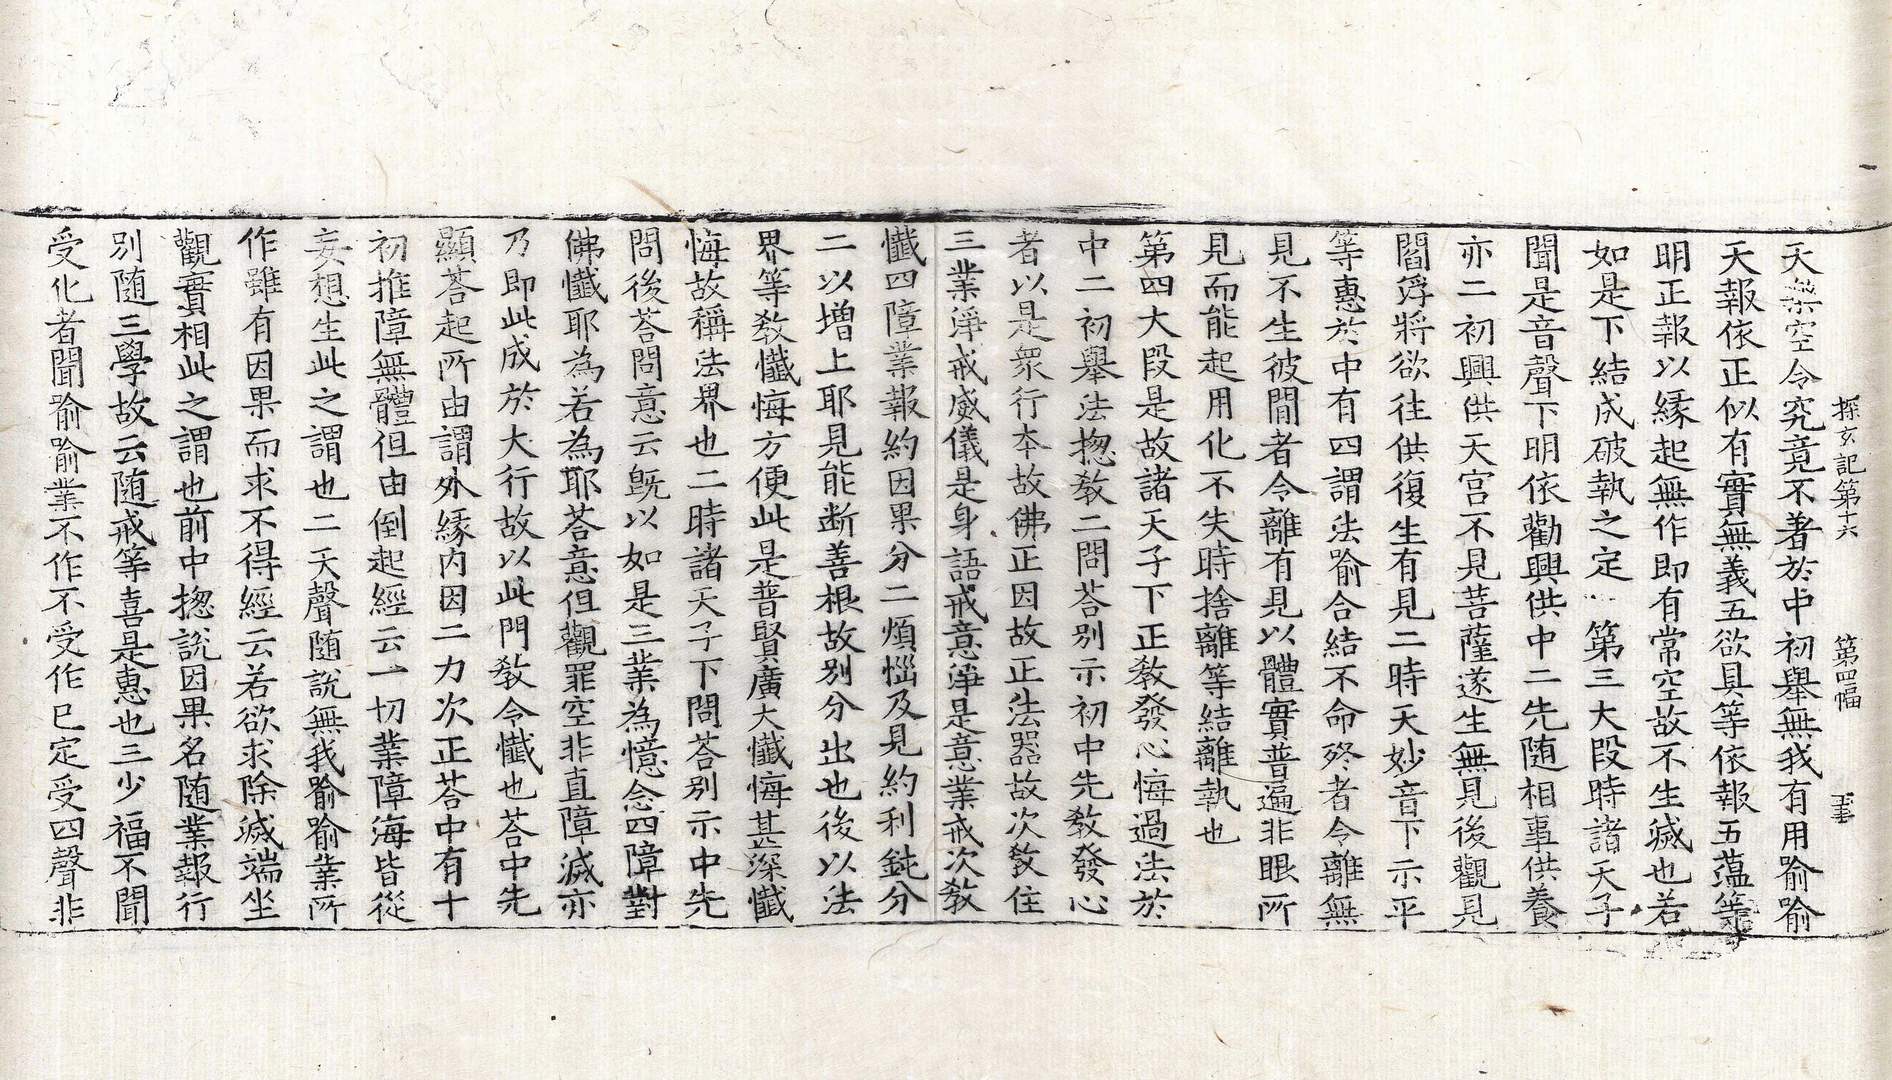 探玄記第十六　第四幅　書
天樂空令究竟不著於中初舉無我有用喻喻
天報依正似有實無義五欲具等依報五蕴等
明正報以縁起無作即有常空故不生滅也若
如是下結成破執之定　第三大段時諸天子
聞是音聲下明依勸興供中二先随相事供養
亦二初興供天宫不見菩薩遂生無見後觀見
閻浮將欲往供復生有見二時天妙音下示平
等惠於中有四謂法喻合結不命終者令離無
見不生彼間者令離有見以體實普遍非眼所
見而能起用化不失時捨離等結離執也
第四大段是故諸天子下正教發心悔過法於
中二初舉法揔教二問荅別示初中先教發心
者以是衆行本故佛正因故正法器故次教住
三業淨戒威儀是身語戒意淨是意業戒次教
懺四障業報約因果分二煩惱及見約利鈍分
二以增上耶見能断善根故別分出也後以法
界等教懺悔方便此是普賢廣大懺悔甚深懺
悔故稱法界也二時諸天子下問荅別示中先
問後荅問意云旣以如是三業為憶念四障對
佛懺耶為若為耶荅意但觀罪空非直障滅亦
乃即此成於大行故以此門教令懺也荅中先
顯荅起所由謂外縁内因二力次正荅中有十
初推障無體但由倒起經云一切業障海皆從
妄想生此之謂也二天聲随說無我喻喻業所
作雖有因果而求不得經云若欲求除滅端坐
觀實相此之謂也前中揔說因果名随業報行
別随三學故云随戒等喜是惠也三少福不聞
受化者聞喻喻業不作不受作已定受四聲非